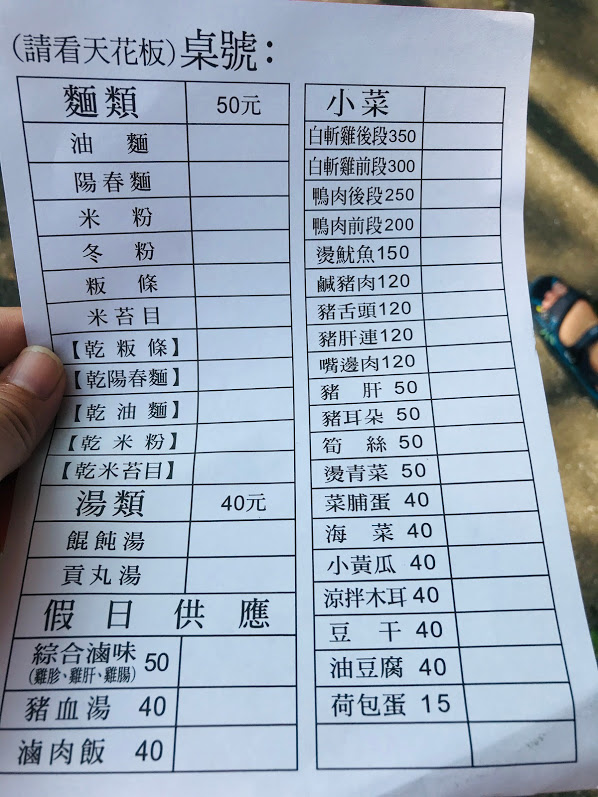 (請看天花板)桌號：
麵類 50元
油麵
陽春麵
米粉
冬粉
粄條
米苔目
【乾粄條】
【乾陽春麵】
【乾油麵】
【乾米粉】
【乾米苔目】
湯類 40元
餛飩湯
貢丸湯
假日供應
綜合滷味 50
(雞胗、雞肝、雞腸)
豬血湯 40
滷肉飯 40
小菜
白斬雞後段350
白斬雞前段300
鴨肉後段250
鴨肉前段200
燙魷魚150
鹹豬肉120
豬舌頭120
豬肝連120
嘴邊肉120
豬肝 50
豬耳朵 50
筍絲 50
燙青菜 50
菜脯蛋 40
海菜 40
小黃瓜 40
涼拌木耳 40
豆干 40
油豆腐 40
荷包蛋 15